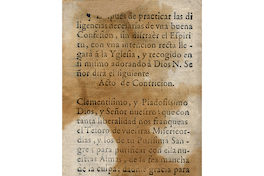 despues de practicar las di
ligencias necessarias de vna buena
Confession, sin distraer el Espiri
tu, con vna intencion recta lle
gará à la Yglesia, y recogido en
si mismo adorando à Dios N. Se
ñor dirà el siguiente
Acto de Contricion.
Clementissimo, y Piadosissimo
Dios, y Señor nuestro que con
tanta liberalidad nos franqueas
el tesoro de vuestras Misericor-
dias, y los de tu Purissima San-
gre para purificar con ella nu-
estras Almas, de la fea mancha
de la culpa, dadme gracia para